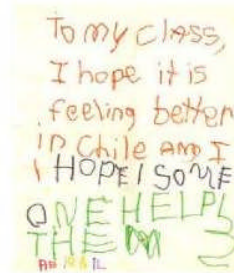 To my class,
I hope it is
feeling better
in Chile AND I
I HOPE SOME
ONE HELPS
THEM